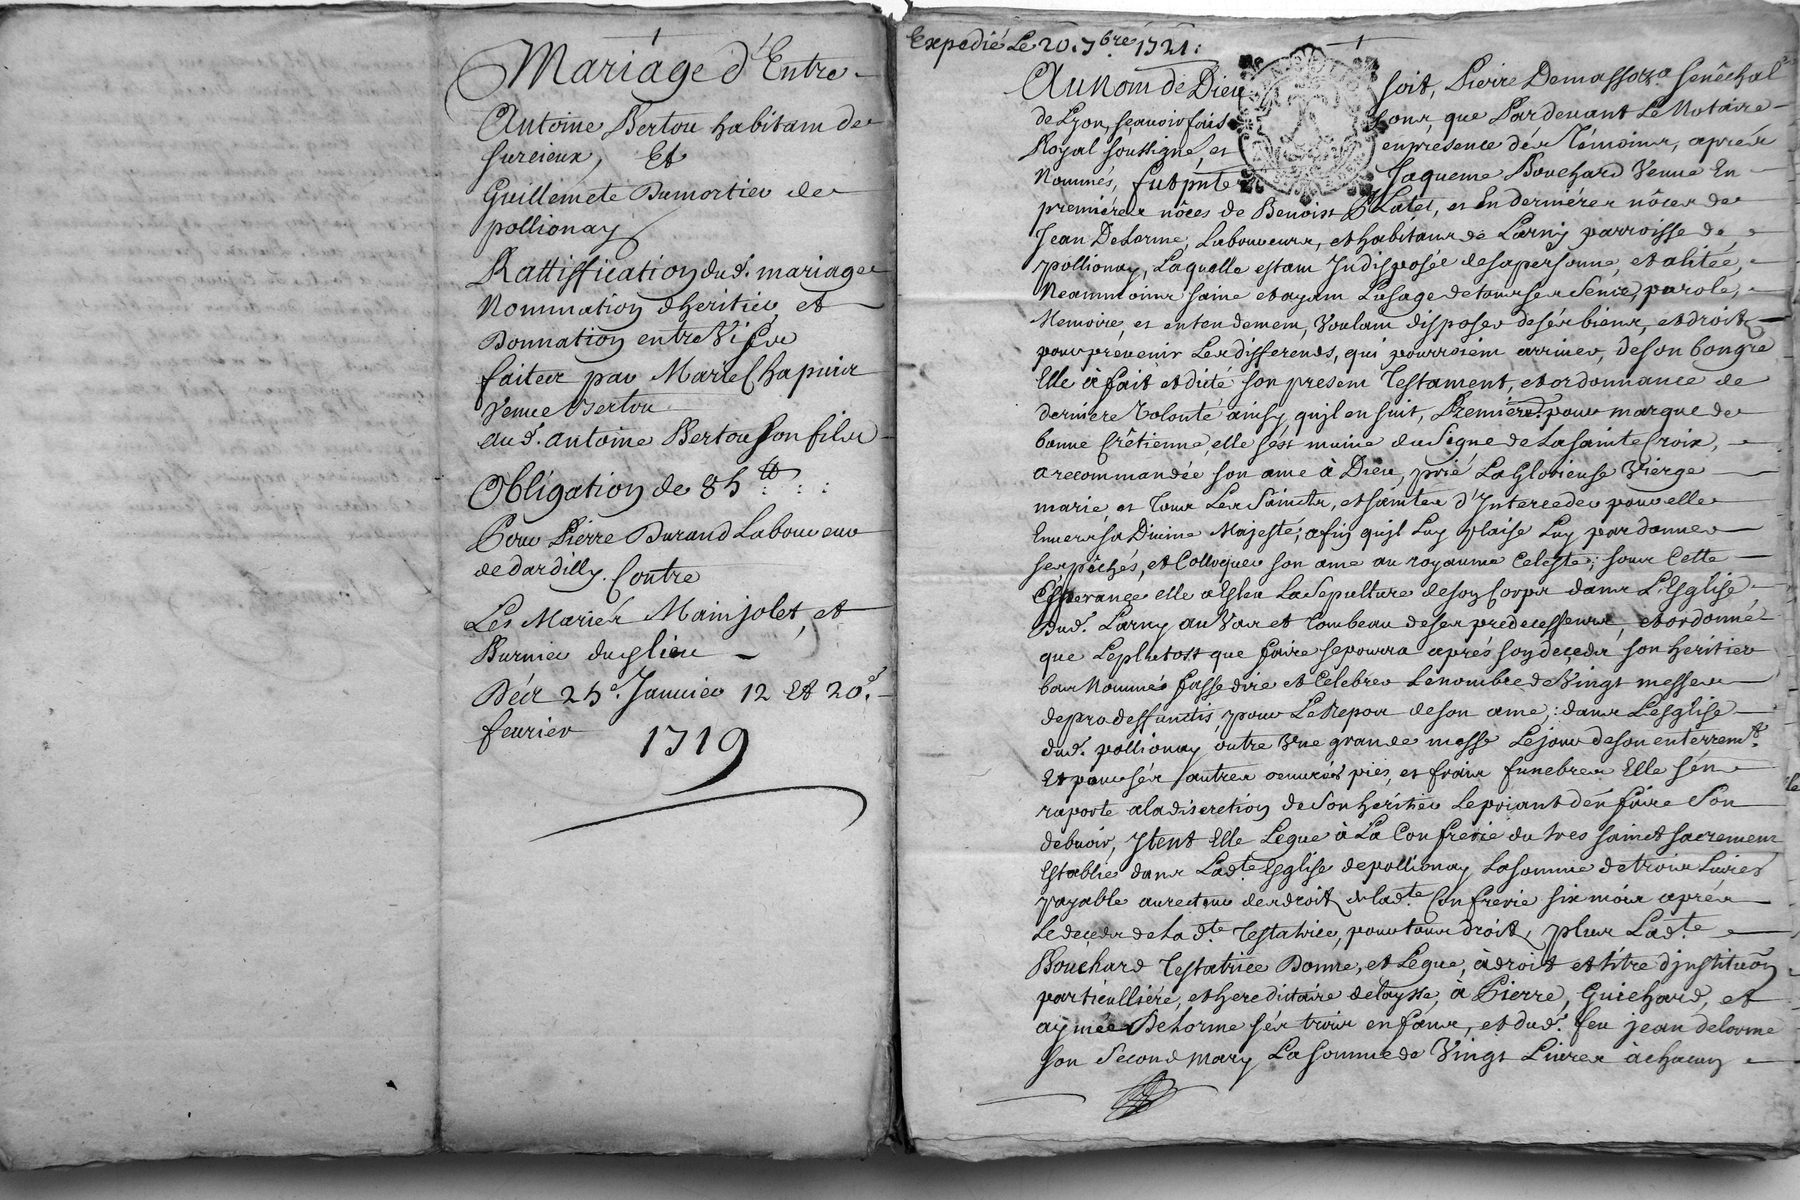 Mariage d'Entre
Antoine Bertou habitam de
surcieux, Et
Guillemete Dumortier de
pollionay
Rattiffication dud. mariage
Nomination d'heritier, et
Donnation entre Vifs
faites par Marie Chapuis
Veuve Bertou
aud. antoine Bertou son fils
Obligation de 85 tt
Pour Pierre Durand Laboureur
de dardilly. Contre
Les Mariés Mainjolet, et
Burnier dud lieu
Des 25e. Janvier 12 Et 20e.
feurier
1719
Expedié Le 20. 7bre 1721.
Au Nom de Dieu soit, Pierre Demassoza senéchal
de Lyon, sçauoir fais sons, que Pardeuant Le Notaire
Royal soussigné, et en presence dés Témoins, aprés
Nommés, fut pnte Jaqueme Bouchard Veuue En
premiéres nôces de Benoist Clatel, et en derniéres nôces de
Jean Delorme, Laboureur, et habitans de Larny parroisse de
pollionay, Laquelle estam Indisposée desapersonne, et alitée,
Neammoins saine et ayam L'usage de tous ses Sens, parole,
Memoire, et entendemem, Voulam disposer de sés biens, et droits
pour prévenir Les differends, qui pourroiem arriuer, de son bongré
Elle à fait et dicté son presem Testament, et ordonnance de
derniere Volonté ainsy, quil en suit, Premiéremt. pour marque de
bonne Crêtienne, elle s'est munie du Signe de La sainte Croix,
a recommandée son ame à Dieu, prié La Glorieuse Vierge
marie, et Tous Les Saincts, et saintes d'Interceder pour elle
Enuers sa Diuine Majesté, afin quil Luy plaise Luy pardonner
ses péchés, et Colloquer son ame au royaume Celeste; sous Cette
Esperance elle a Esleu La Sepulture de son Corps dans L'Esglise
Dud. Larny au Vas et Tombeau de ses predecesseurs, et ordonné
que Leplutost que faire sepourra aprés son decéds son héritier
bas Nommés fasse dire et Celebrer Le nombre de Vingt messes
de pro deffunctis, pour Le Repos de son ame; dans L'esglise
dud. pollionay outre Vne grande messe Le jour de son enterremt.
Et pour sés autres oeuures pies, et frais funebres Elle s'én
raporte a la discretion de Son héritier Le priant d'én faire Son
debuoir, Itent Elle Legue à La Confrerie du tres sainct sacremem
Establie dans Ladte. Esglise de pollionay La somme de trois Liures
payable au recteur des droits de ladte. Confrerie six mois aprés
Le decéds de La dte. Testatrice, pour tous droits, plus Ladte.
Bouchard Testatrice Donne, et Legue, à droit et titre d'jnstituõn
particulliére, et hereditaire delaysse, à Pierre, Guichard, et
aymée Delorme sés trois enfans, et dud. feu jean delorme
son Second mary La somme de Vingt Liures à chacun